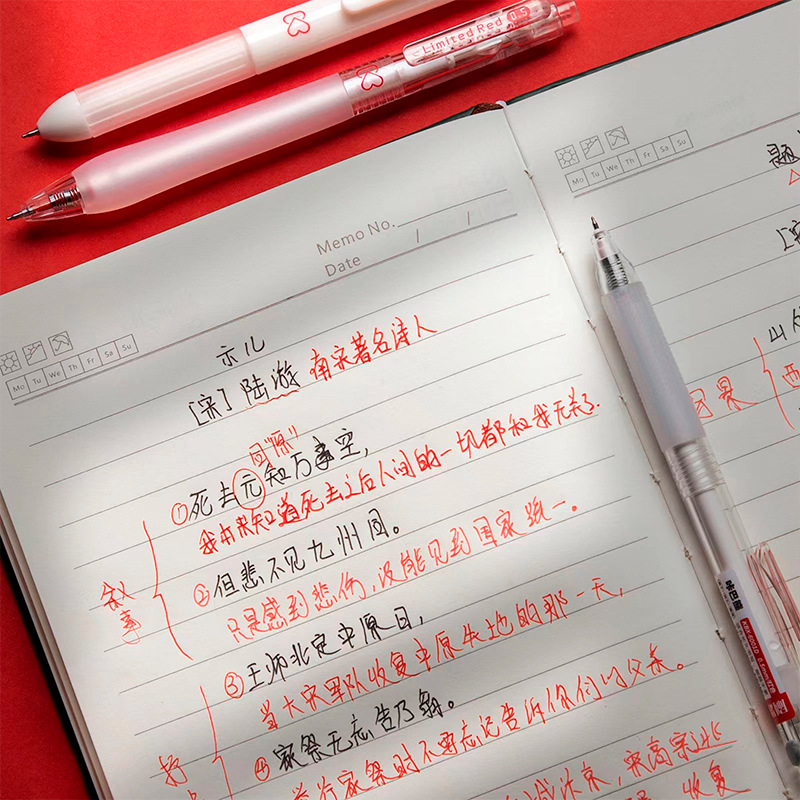 Limited Red 0.5
Memo No.
Date / /
Mo Tu We Th Fr Sa Su
示儿
[宋] 陆游 南宋著名诗人
同“原”
①死去元知万事空,
我本来知道死去之后人间的一切都和我无关了.
②但悲不见九州同。
只是感到悲伤,没能见到国家统一。
叙事
③王师北定中原日,
当大宋军队收复中原失地的那一天,
④家祭无忘告乃翁。
举行家祭时不要忘记告诉你们的父亲。
抒
汴京,宋高宗
收复
Mo Tu We Th Fr Sa Su
题
山外
西
因果
0.5mm